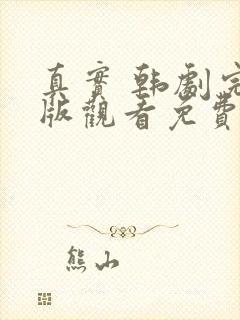 真實 韩劇完
版觀看免費
熊山